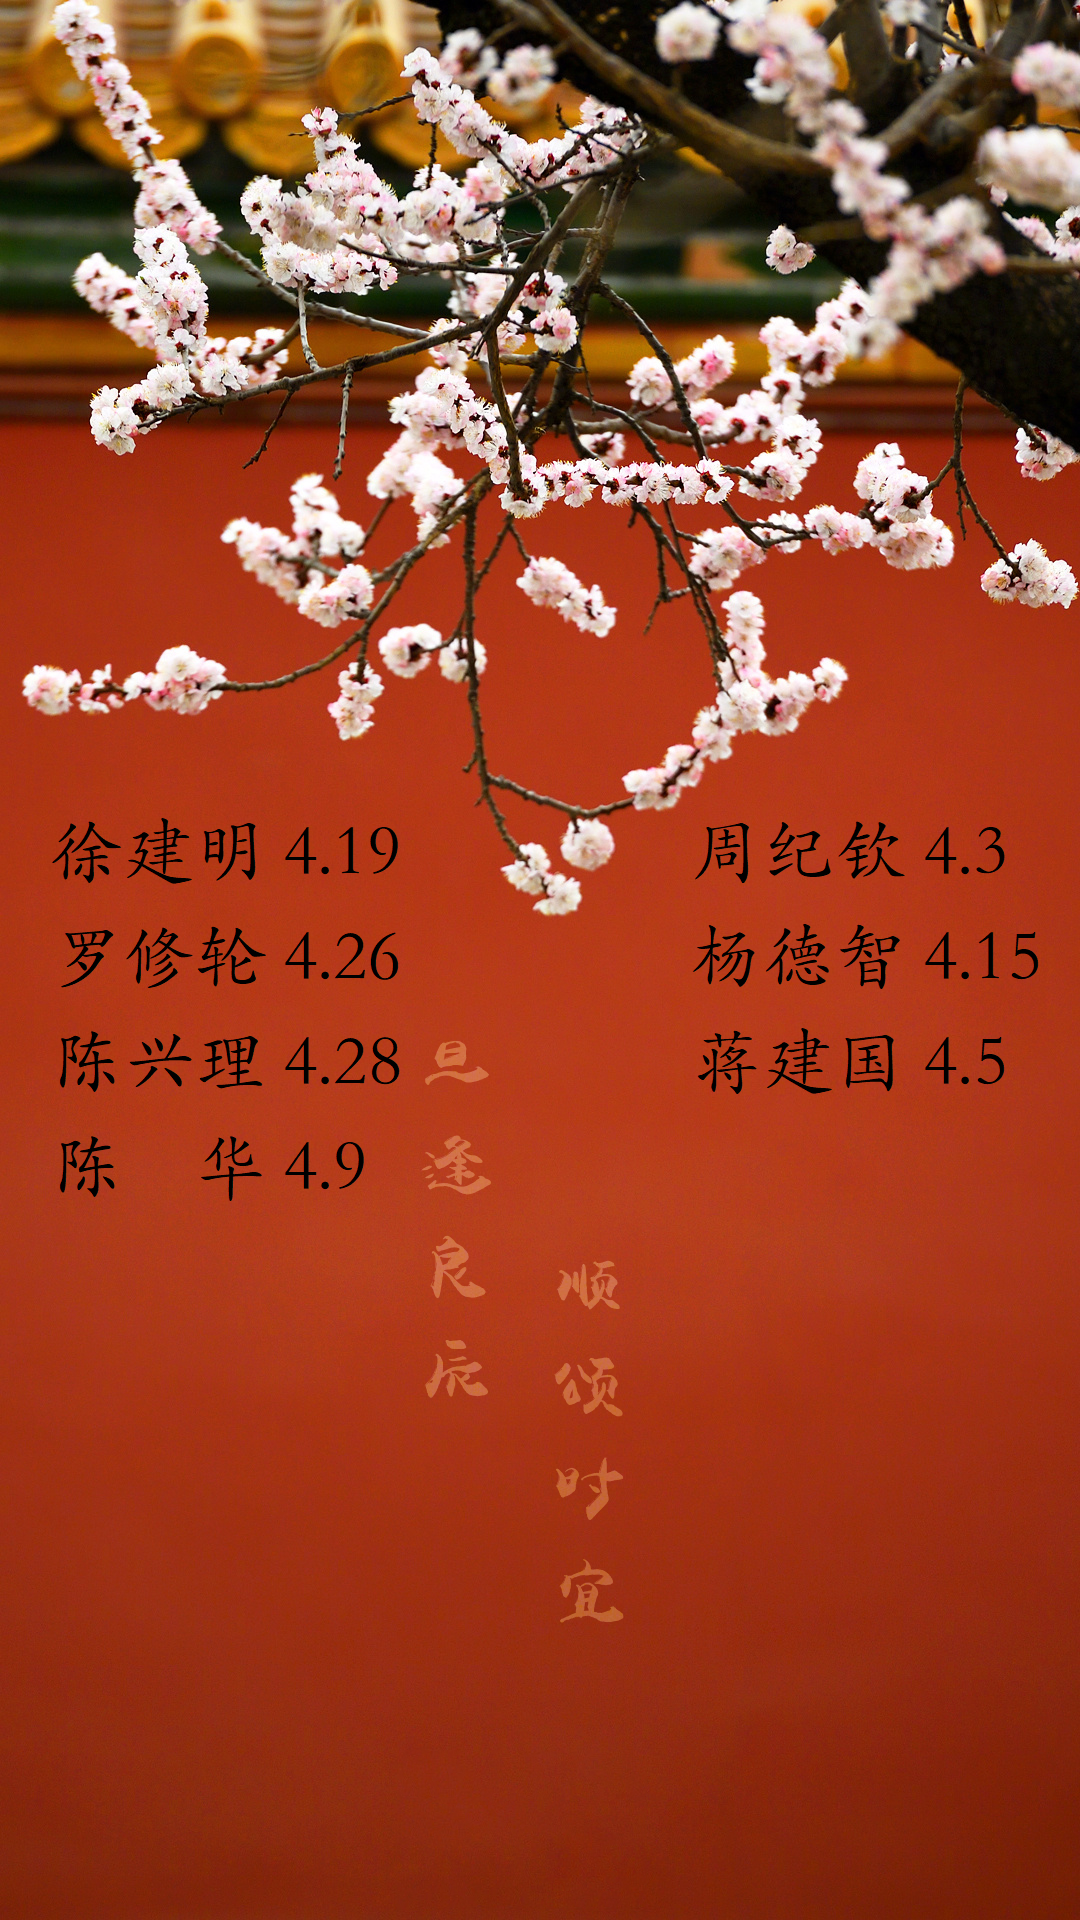 徐建明 4.19
罗修轮 4.26
陈兴理 4.28
陈　华 4.9
周纪钦 4.3
杨德智 4.15
蒋建国 4.5
旦逢良辰
顺颂时宜